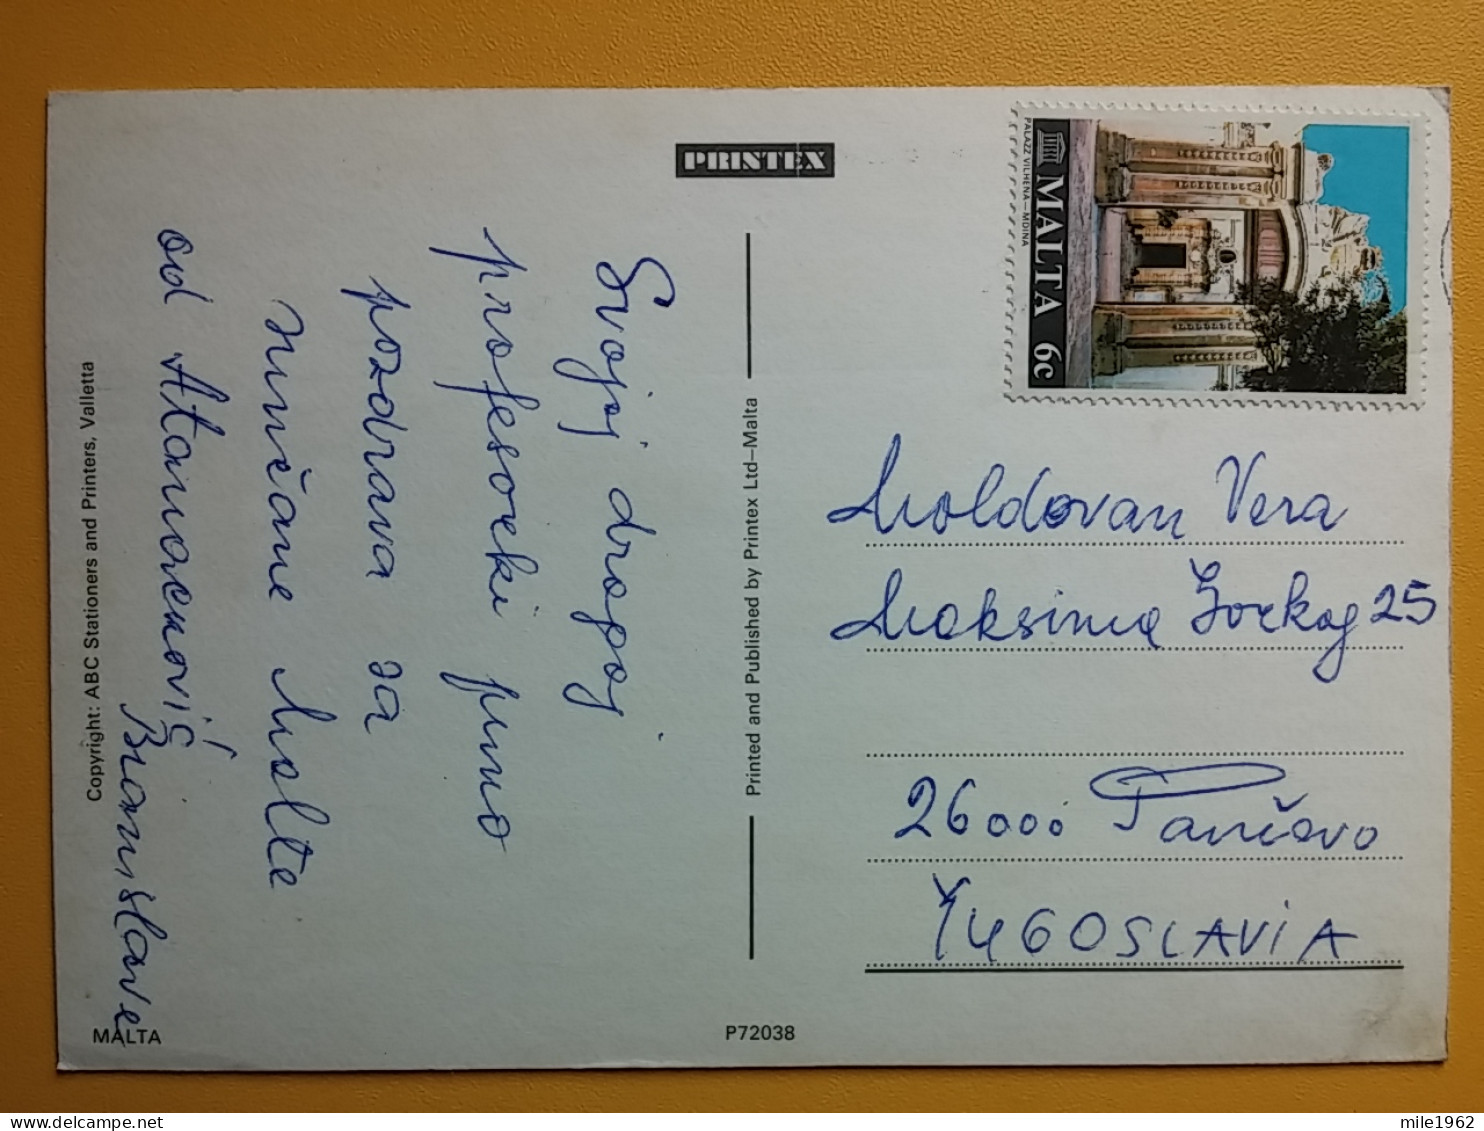 PRINTEX
MALTA 6c
PALAZZ VILHENA—MDINA
Svojoj dragoj
profesorki puno
pozdrava sa
sunčane Malte
od Atanacković
Branislave
Moldovan Vera
Maksima Gorkog 25
26000 Pančevo
YUGOSLAVIA
Printed and Published by Printex Ltd—Malta
Copyright: ABC Stationers and Printers, Valletta
MALTA
P72038
mile1962